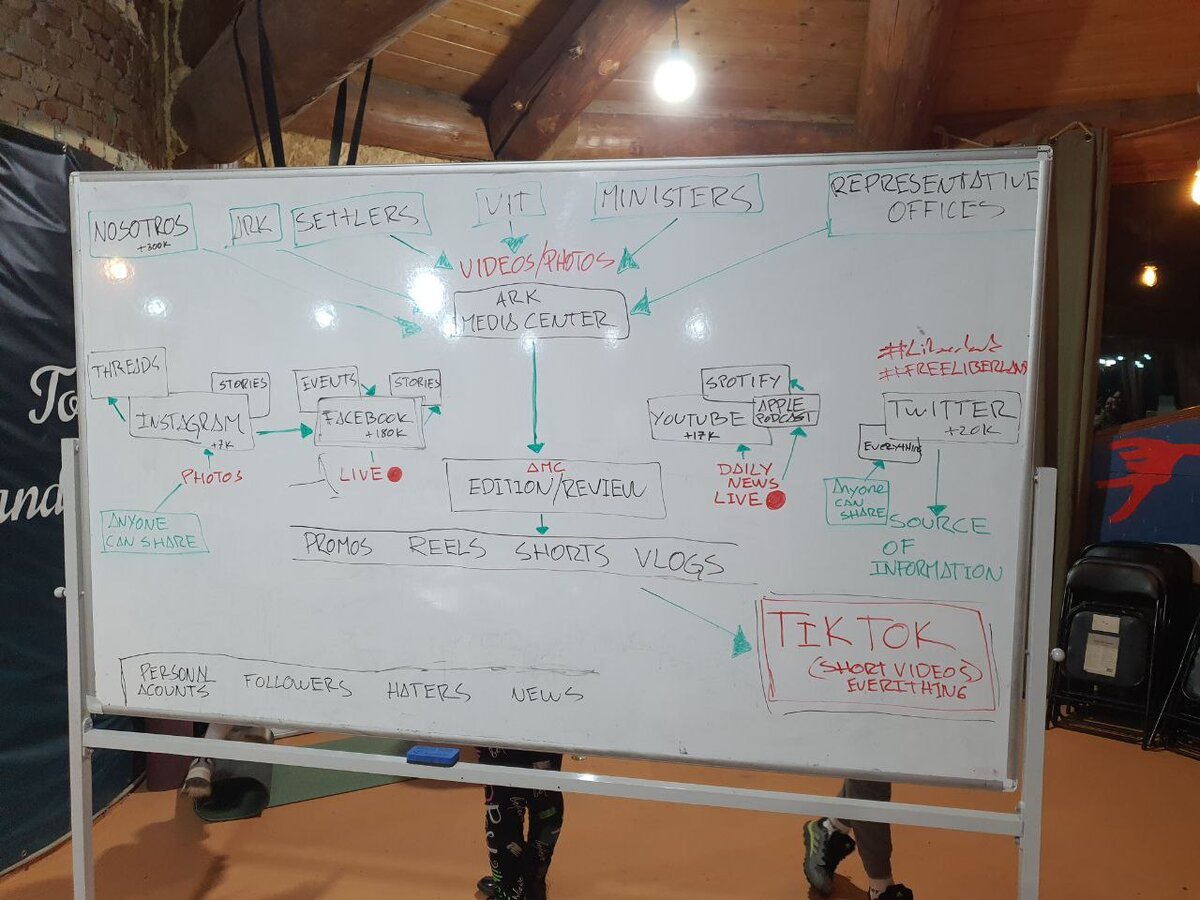 NOSOTROS
+300K
ARK
SETTLERS
VIT
MINISTERS
REPRESENTATIVE
OFFICES
VIDEOS/PHOTOS
ARK
MEDIA CENTER
THREADS
STORIES
INSTAGRAM
+7K
PHOTOS
ANYONE
CAN SHARE
EVENTS
STORIES
FACEBOOK
+180K
LIVE
AMC
EDITION/REVIEW
SPOTIFY
YOUTUBE
+17K
APPLE
PODCAST
DAILY
NEWS
LIVE
#Liberland
#FREELIBERLAND
TWITTER
+20K
EVERYTHING
ANYONE
CAN
SHARE
SOURCE
OF
INFORMATION
PROMOS REELS SHORTS VLOGS
TIKTOK
(SHORT VIDEOS)
EVERITHING
PERSONAL
ACOUNTS
FOLLOWERS HATERS NEWS
To
and